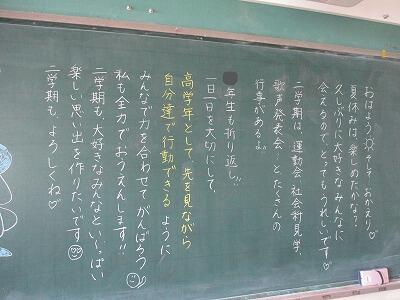 おはよう☀そして、おかえり♡
夏休みは、楽しめたかな?
久しぶりに大好きなみんなに
会えるので、とってもうれしいです♡
二学期は、運動会、社会科見学、
歌声発表会…とたくさんの
行事があるよ。
年生も折り返し!!
一日一日を大切にして、
高学年として、先を見ながら
自分達で行動できるように
みんなで力を合わせてがんばろう
私も全力でおうえんします!!
二学期も、大好きなみんなといっぱい
楽しい思い出を作りたいです
二学期も、よろしくね♡